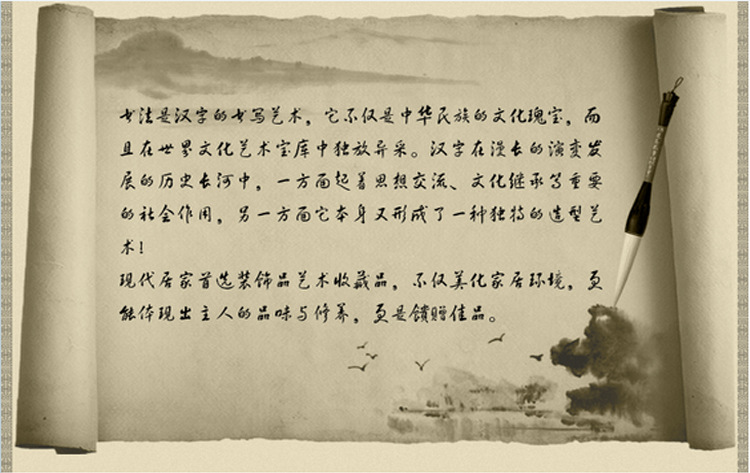 书法是汉字的书写艺术，它不仅是中华民族的文化瑰宝，而
且在世界文化艺术宝库中独放异采。汉字在漫长的演变发
展的历史长河中，一方面起着思想交流、文化继承等重要
的社会作用，另一方面它本身又形成了一种独特的造型艺
术！
现代居家首选装饰品艺术收藏品，不仅美化家居环境，更
能体现出主人的品味与修养，更是馈赠佳品。